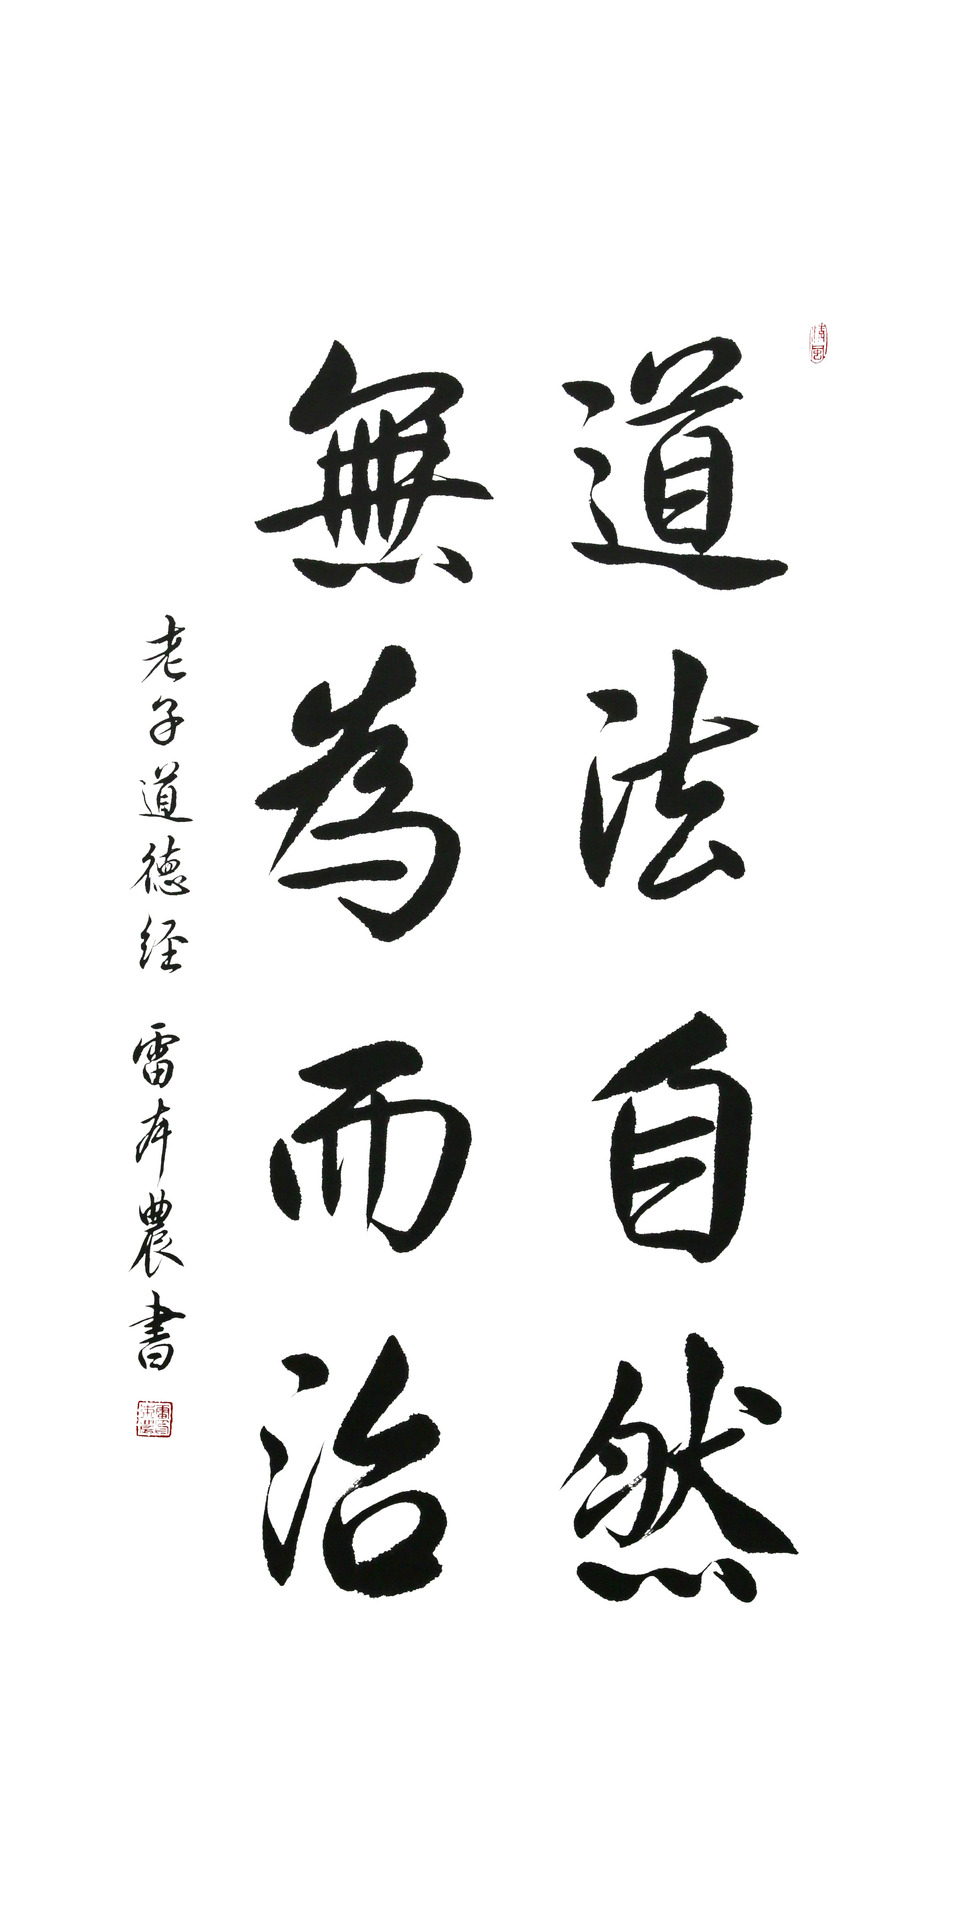 道法自然
無為而治
老子道德经 雷存農書